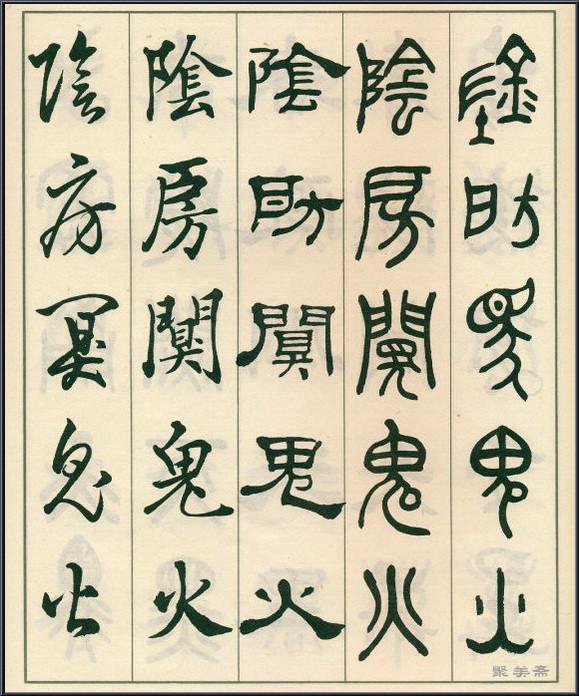 陰房闃鬼火
陰房闃鬼火
陰房闃鬼火
陰房闃鬼火
陰房闃鬼火
聚美斋